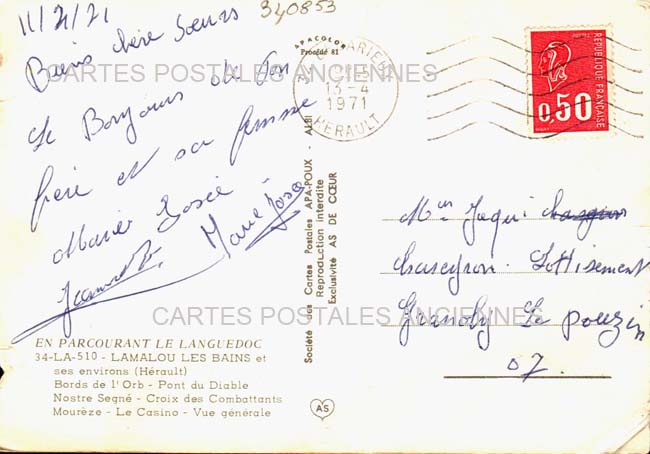 11/4/71
340853
Biens chère Soeurs
Le Bonjour de ton
frère et sa femme
Marie Josée
Marie Josée
APACOLOR
Procédé 81
13-4
1971
HERAULT
0,50
REPUBLIQUE FRANÇAISE
CARTES POSTALES ANCIENNES
Société des Cartes Postales APA-POUX - ALBI
Reproduction interdite
Exclusivité AS DE CŒUR
Jaqui
Lotissement
Granoly Le pouzin
07.
CARTES POSTALES ANCIENNES
EN PARCOURANT LE LANGUEDOC
34-LA-510 - LAMALOU LES BAINS et
ses environs (Hérault)
Bords de l'Orb - Pont du Diable
Nostre Segné - Croix des Combattants
Mourèze - Le Casino - Vue générale
AS